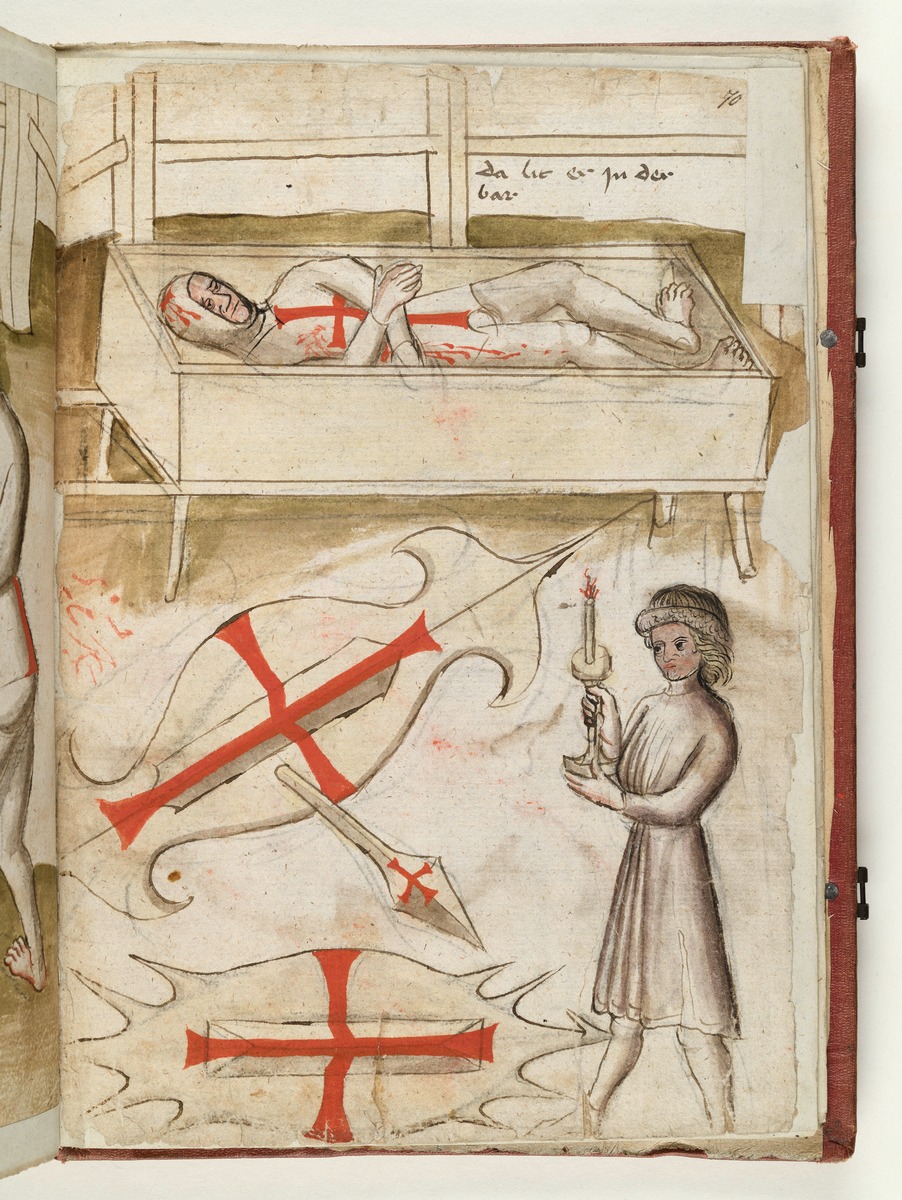 70
da lit er jn der
bar